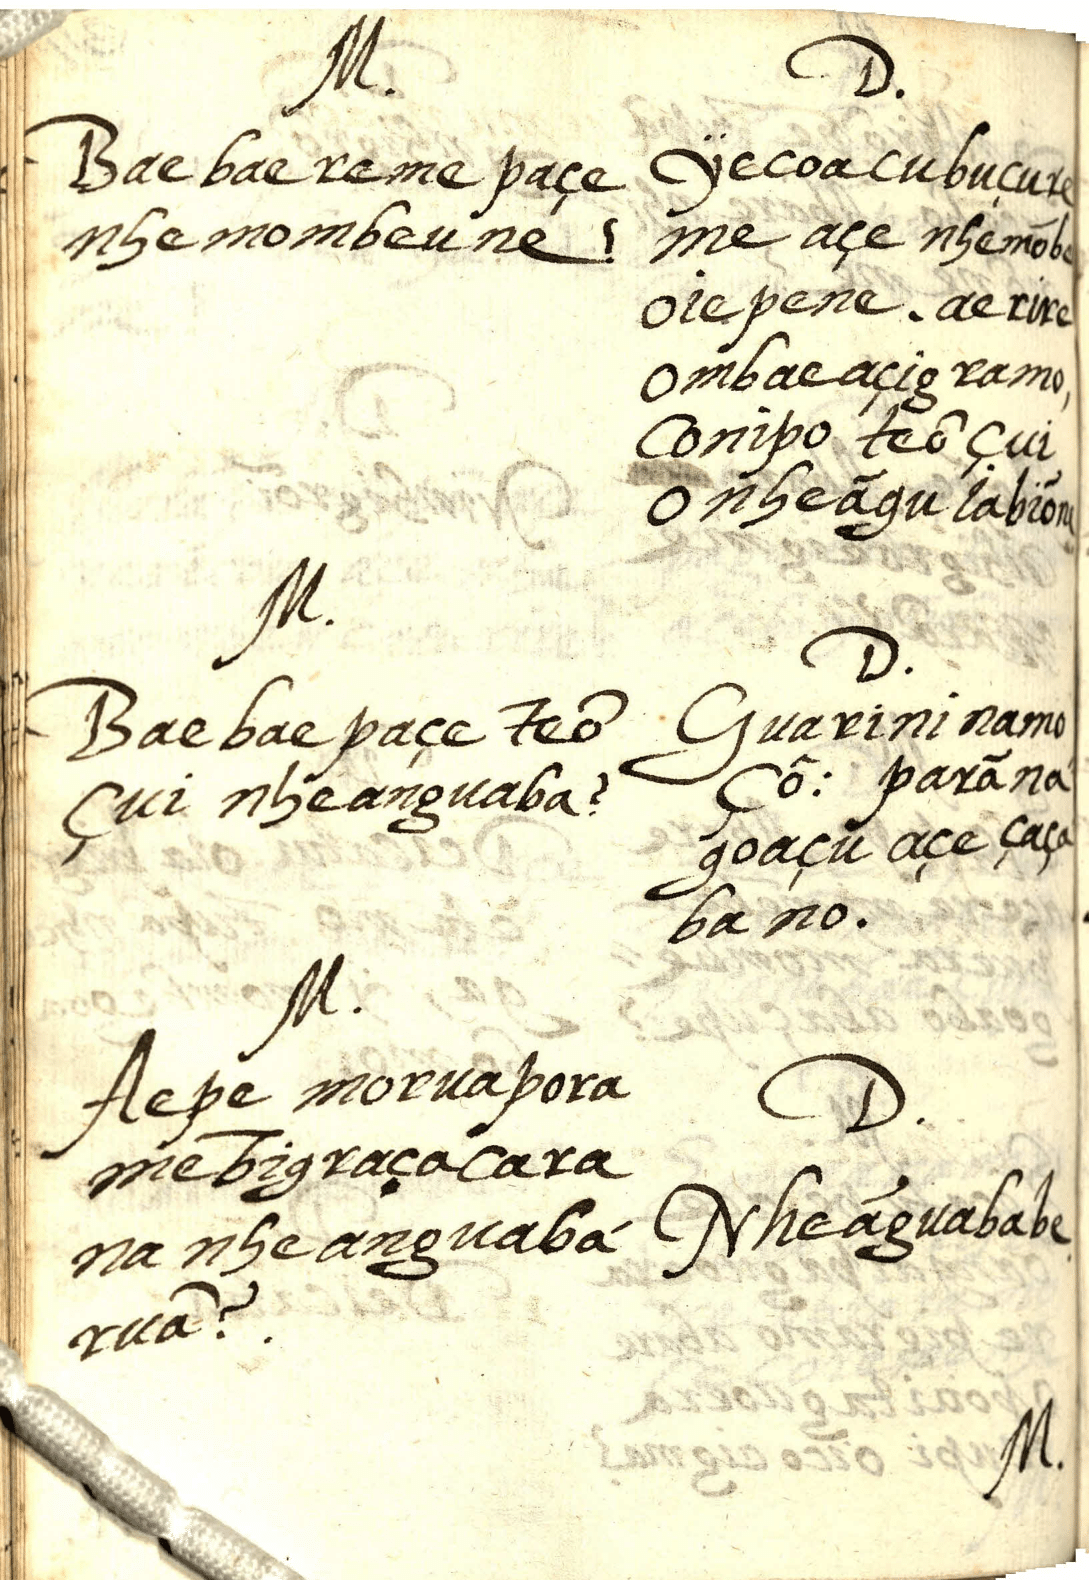 M.
Bae bae reme paçe
nhe mombeu ne?
D.
Ÿecoacubuçure
me açe nhemõbe
oie pene. ae rire
ombae açig ramo,
Conipo teõ çui
o nheãgu iabiõne
M.
Bae bae paçe teõ
çui nheanguaba?
D.
Guarini namo
çõ: parãna
goaçu açe çaça
ba no.
M.
Aepe moruapora
mebigraçoçara
na nheanguaba
ruã?.
D.
Nheãguababe
M.